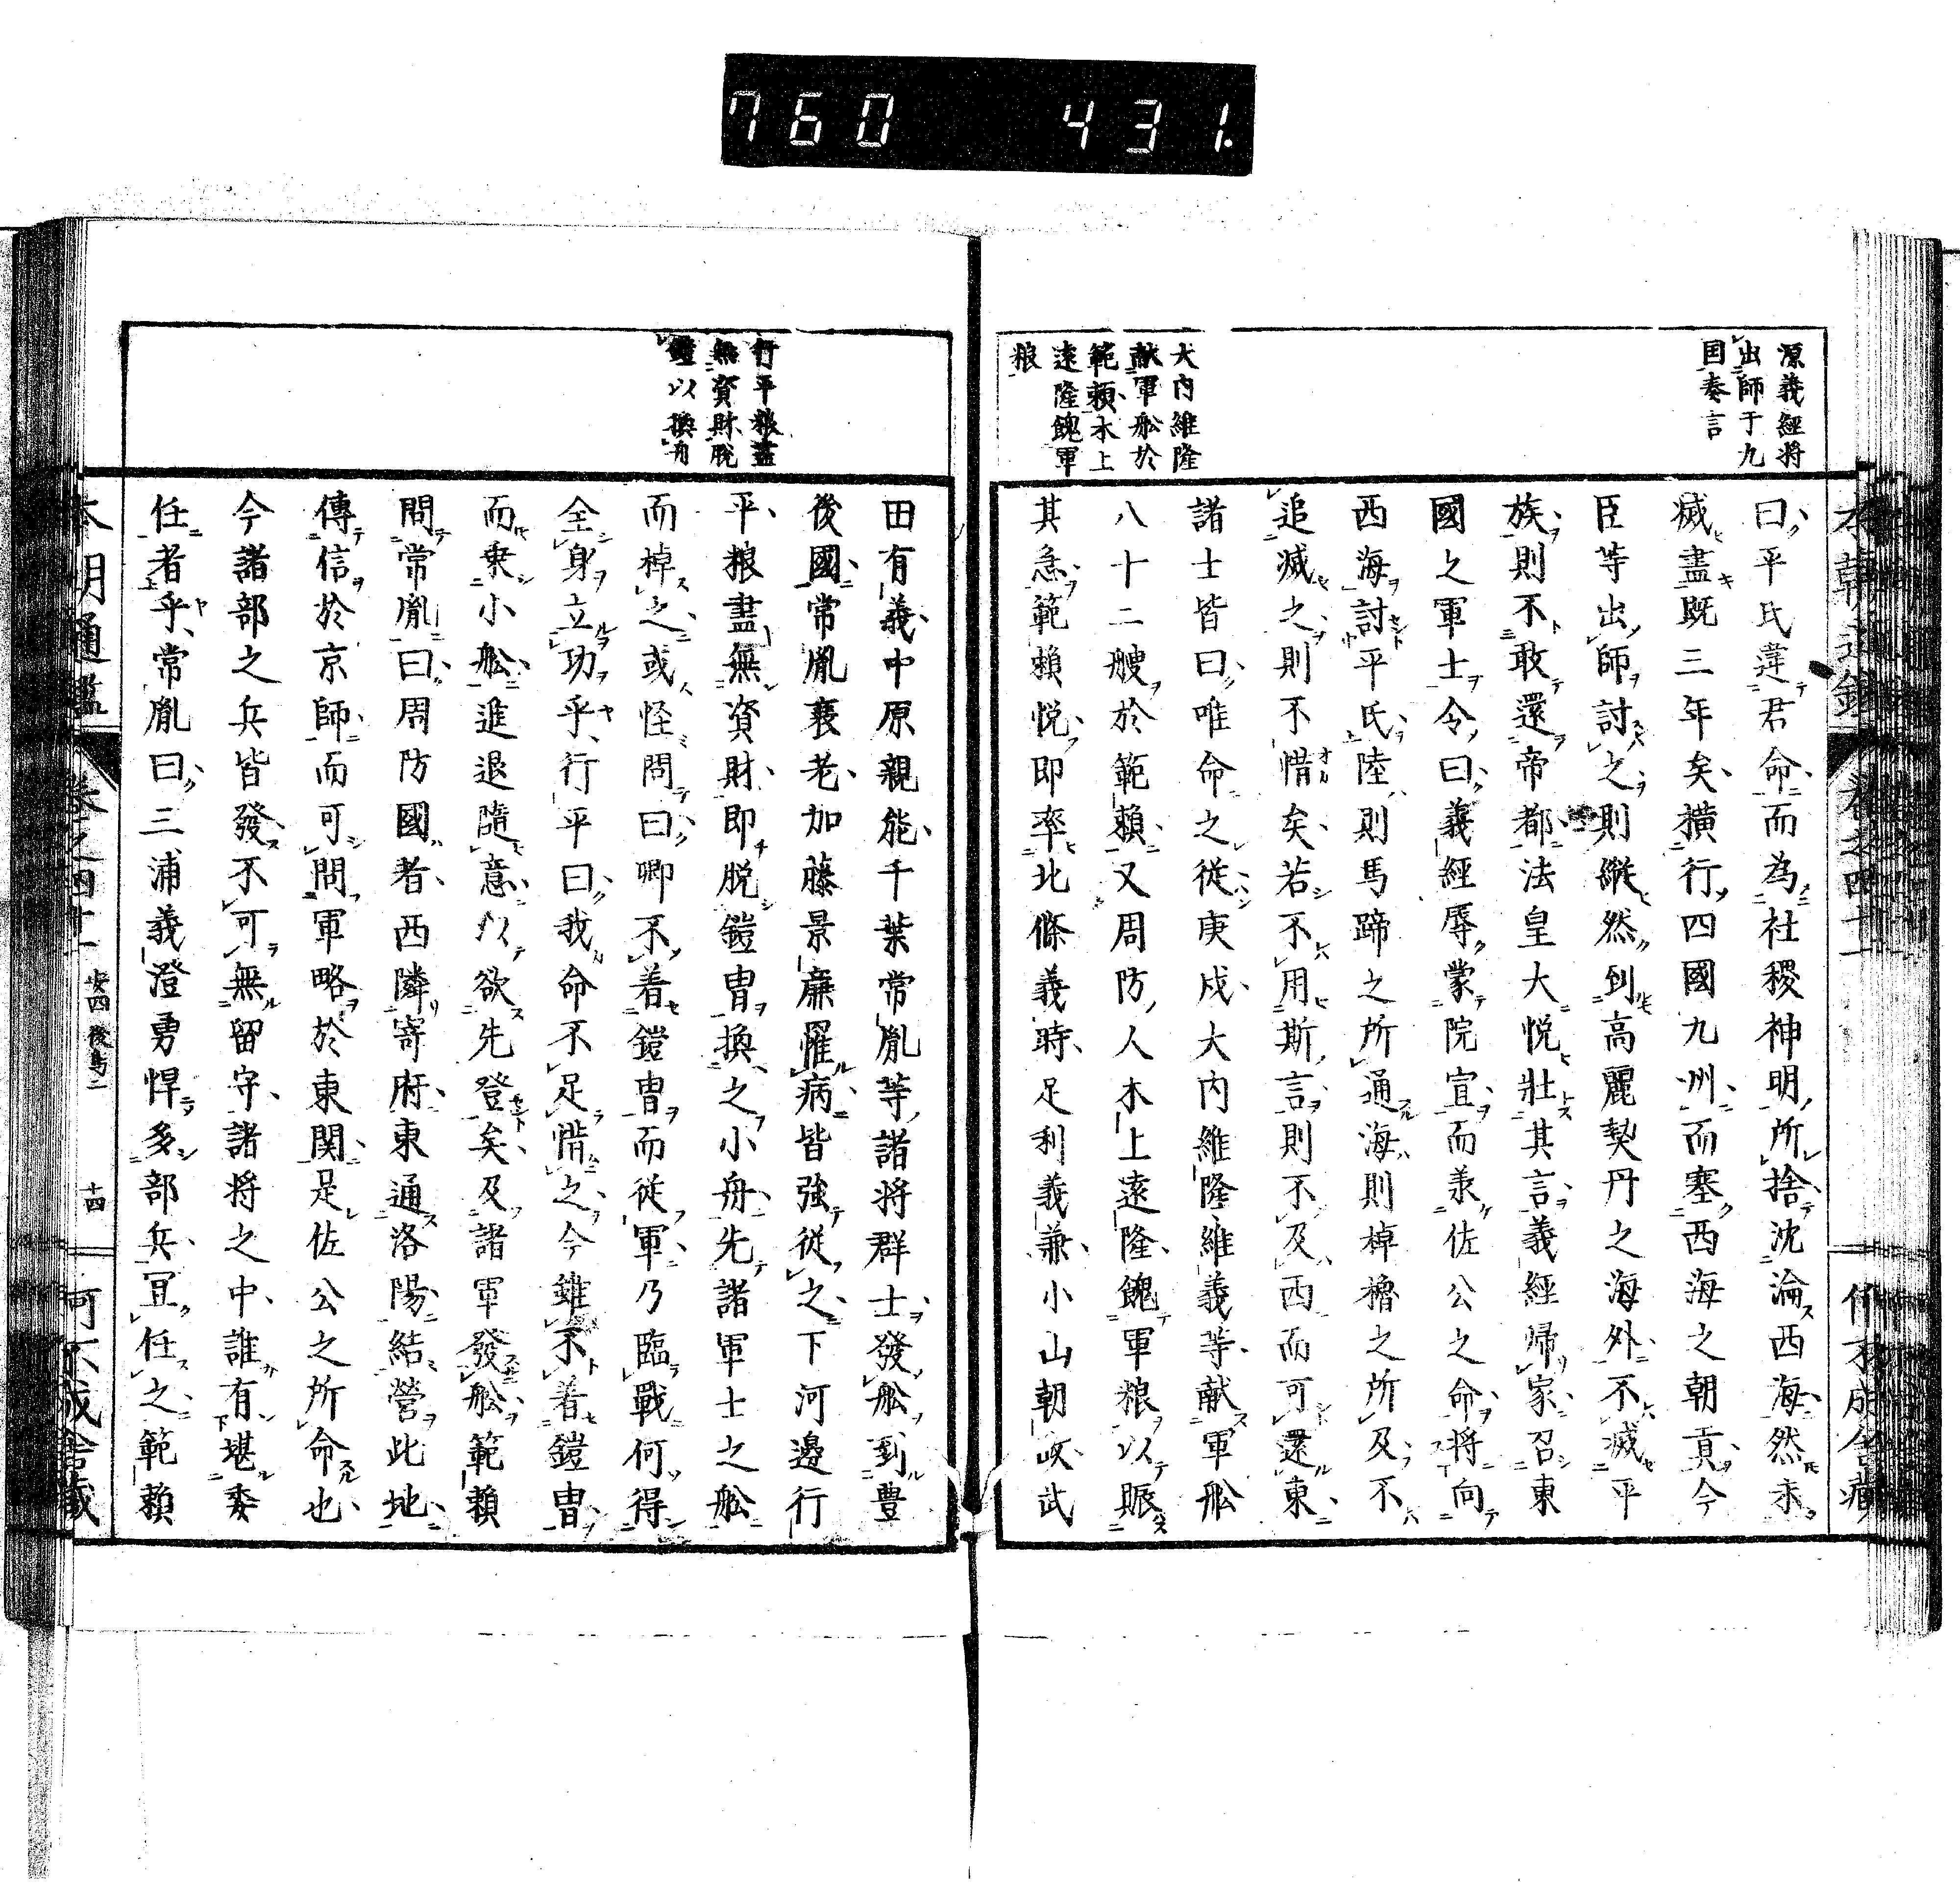 760 431.
源義經将
出師于九
国奏言
曰平氏違君命而為社稷神明所捨沈淪西海然永
滅盡既三年矣横行四國九州而塞西海之朝貢今
臣等出師討之則縦然到高麗契丹之海外不滅平
族則不敢還帝都法皇大悦壮其言義經帰家召東
國之軍士令曰義經辱蒙院宣而兼佐公之命将向
西海討平氏陸則馬蹄之所通海則棹櫓之所及不
追滅之則不惜矣若不用斯言則不及西而可還東
諸士皆曰唯命之從庚戌大内維隆維義等献軍舩
八十二艘於範頼又周防人木上遠隆餽軍粮以賑
其急範頼悦即率北條義時足利義兼小山朝政武
大内維隆
献軍舩於
範頼木上
遠隆餽軍
粮
田有義中原親能千葉常胤等諸将群士發舩到豊
後國常胤衰老加藤景廉罹病皆強從之下河邊行
平粮盡無資財即脱鎧冑換之小舟先諸軍士之舩
而棹之或怪問曰卿不着鎧冑而従軍乃臨戰何得
全身立功乎行平曰我命不足惜之今雖不着鎧冑
而乗小舩進退隨意以欲先登矣及諸軍發舩範頼
問常胤曰周防國者西隣寄府東通洛陽結營此地
傳信於京師而可問軍略於東関是佐公之所命也
今諸部之兵皆發不可無留守諸将之中誰有堪委
任者乎常胤曰三浦義澄勇悍多部兵冝任之範頼
行平粮盡
無資財脱
鎧以換舟
本朝通鑑 卷之四十一 安四 後鳥二 十四